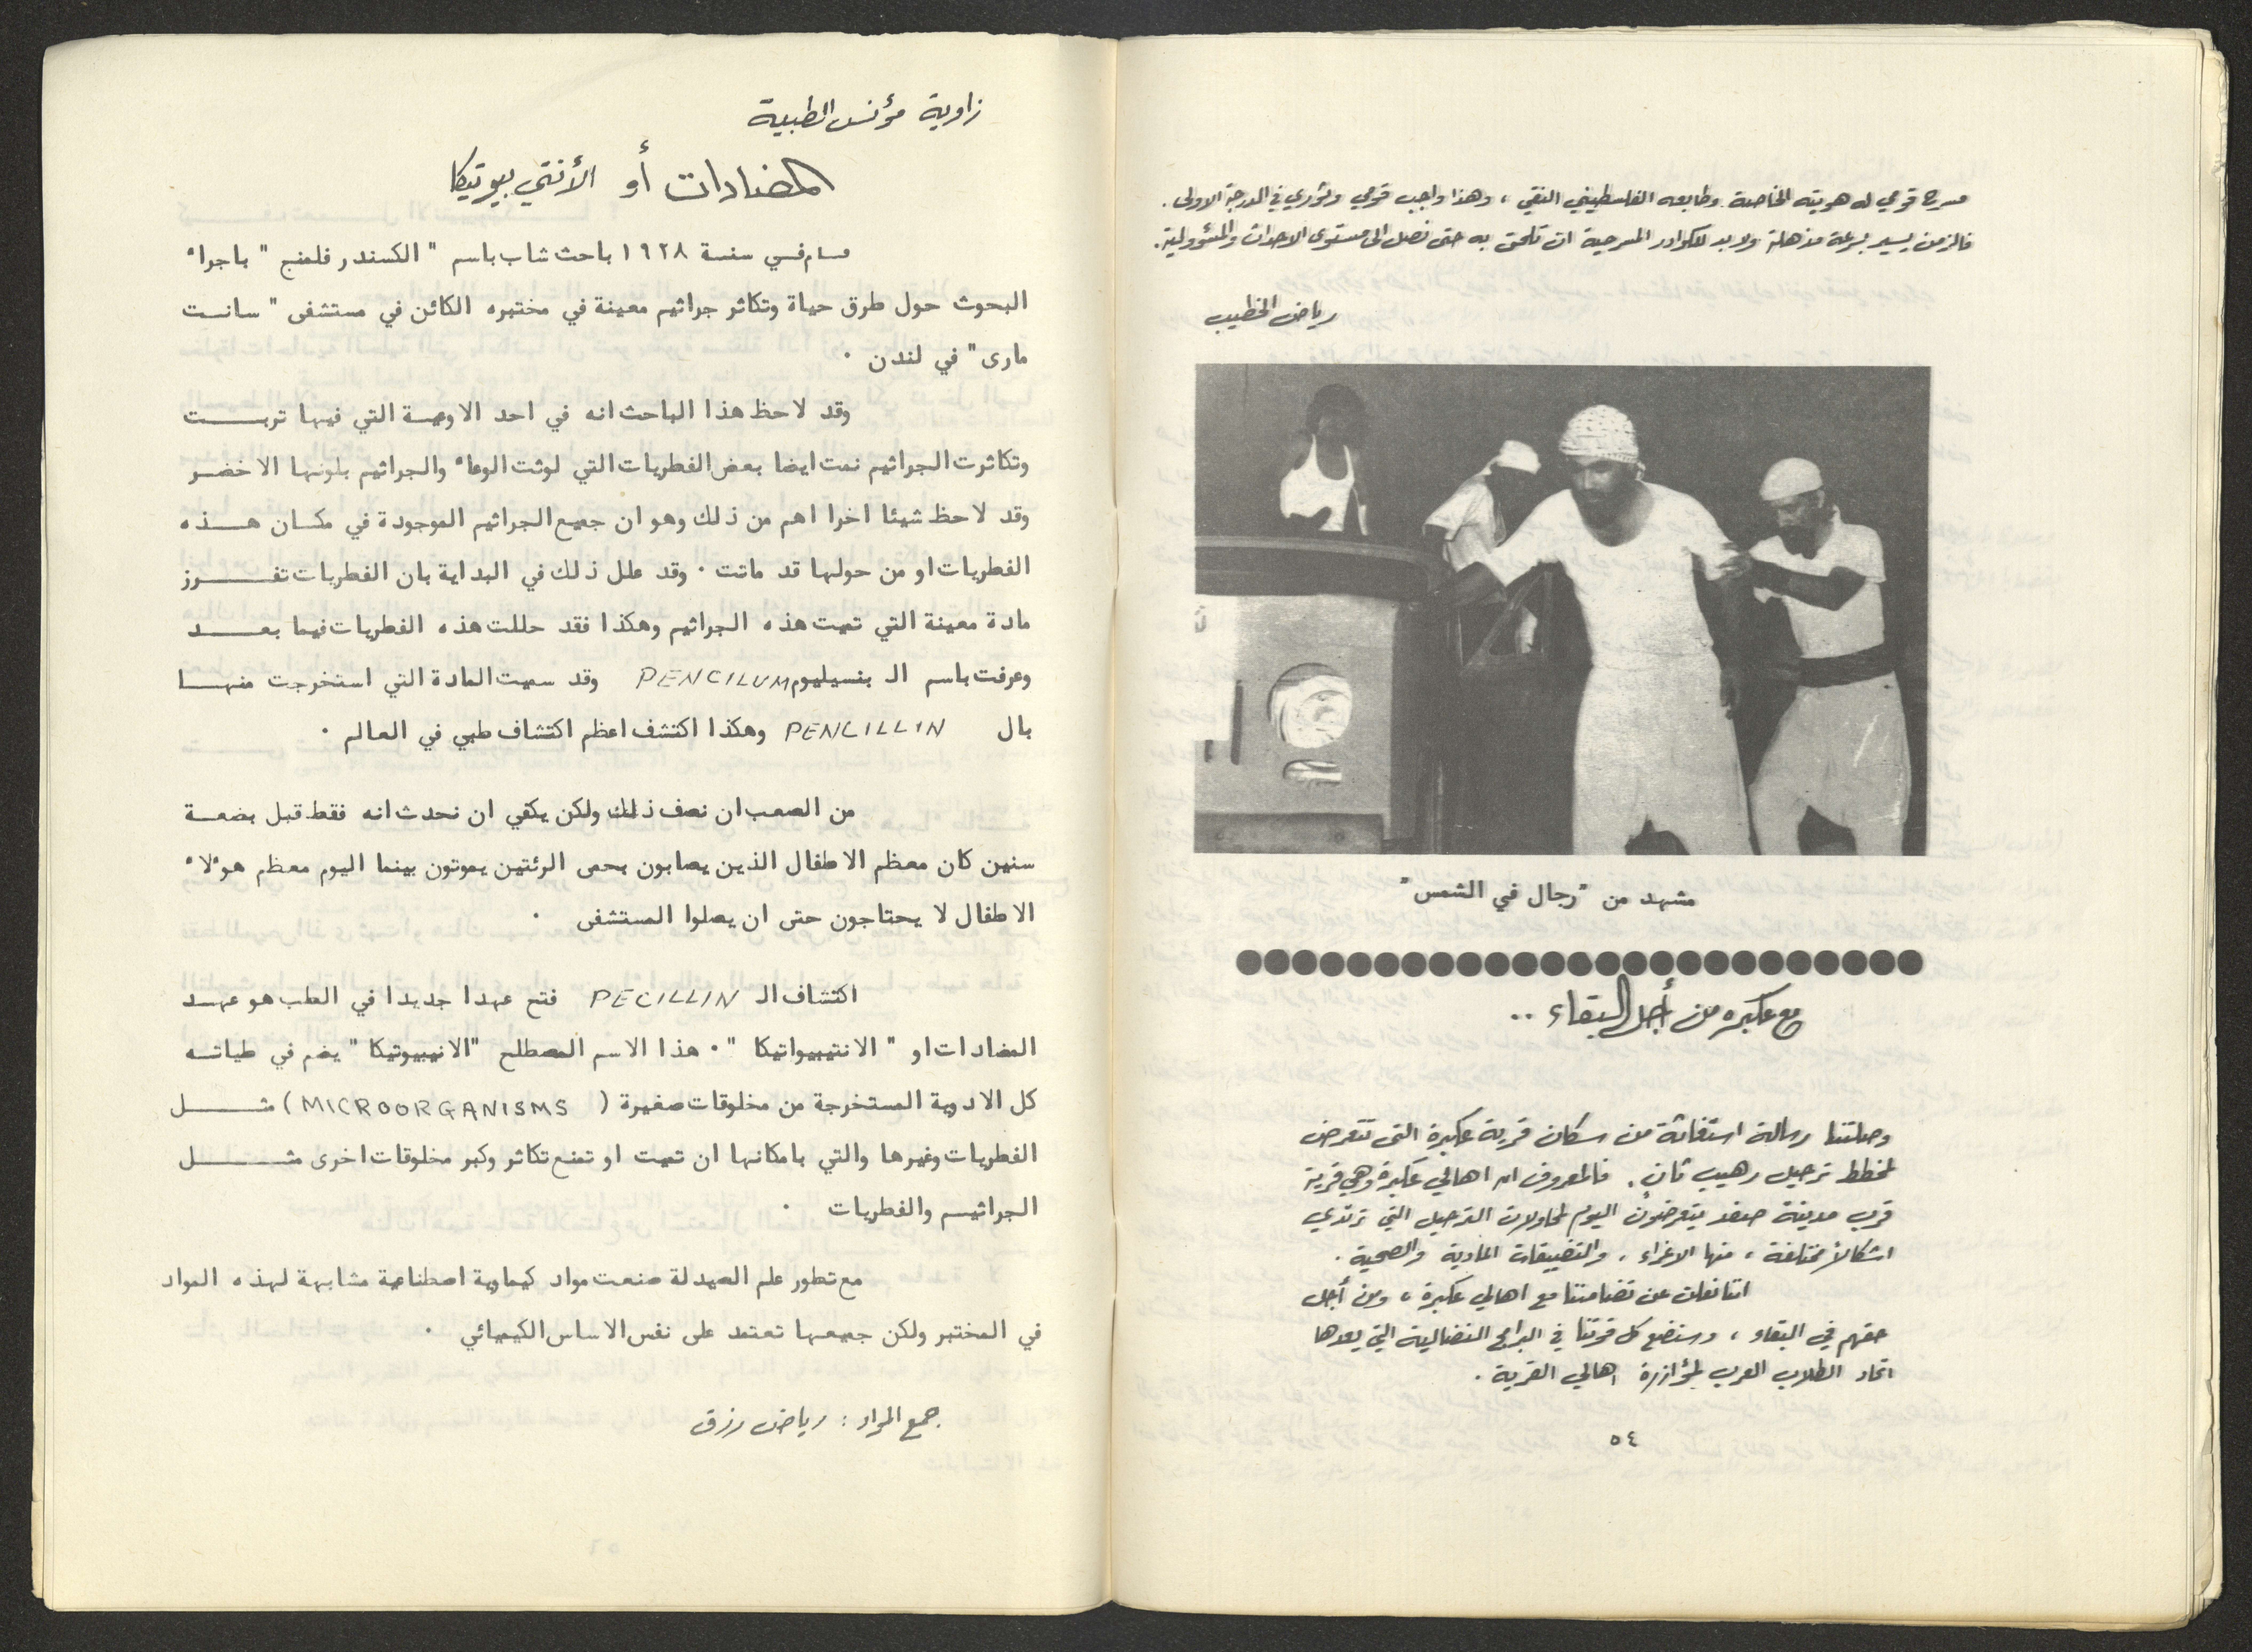 مسرح قومي له هويته الخاصة وطابعه الفلسطيني النقي ، وهذا واجب قومي وثوري في الدرجة الاولى .
فالزمن يسير بسرعة مذهلة ولا بد للكوادر المسرحية ان تلحق به حتى نصل الى مستوى الاحداث والمسؤولية .
رياض الخطيب
مشهد من "رجال في الشمس"
مع عكبره من أجل البقاء ..
وصلتنا رسالة استغاثة من سكان قرية عكبرة التي تتعرض
لمخطط ترحيل رهيب ثانٍ . فالمعروف ان اهالي عكبرة وهي قرية
قرب مدينة صفد يتعرضون اليوم لمحاولات الترحيل التي ترتدي
اشكالاً مختلفة ، منها الاغراء ، والتضييقات المادية والصحية .
اننا نعلن عن تضامننا مع اهالي عكبرة ، ومن أجل
حقهم في البقاء ، وسنضع كل قوتنا في البرامج النضالية التي يعدها
اتحاد الطلاب العرب لمؤازرة اهالي القرية .
٥٤
زاوية مؤنس الطبية
المضادات أو الأنتي بيوتيكا
قام في سنة ١٩٢٨ باحث شاب باسم " الكسندر فلمنج " باجراء
البحوث حول طرق حياة وتكاثر جراثيم معينة في مختبره الكائن في مستشفى " سانت
مارى " في لندن .
وقد لاحظ هذا الباحث انه في احد الاوعية التي فيها تربت
وتكاثرت الجراثيم نمت ايضا بعض الفطريات التي لوثت الوعاء والجراثيم بلونها الاخضر
وقد لاحظ شيئا اخرا اهم من ذلك وهو ان جميع الجراثيم الموجودة في مكان هذه
الفطريات او من حولها قد ماتت . وقد علل ذلك في البداية بان الفطريات تفرز
مادة معينة التي تميت هذه الجراثيم وهكذا فقد حللت هذه الفطريات فيما بعد
وعرفت باسم الـ بنسيليوم PENCILUM وقد سميت المادة التي استخرجت منها
بال PENCILLIN وهكذا اكتشف اعظم اكتشاف طبي في العالم .
من الصعب ان نصف ذلك ولكن يكفي ان نحدث انه فقط قبل بضعة
سنين كان معظم الاطفال الذين يصابون بحمى الرئتين يموتون بينما اليوم معظم هو*لاء
الاطفال لا يحتاجون حتى ان يصلوا المستشفى .
اكتشاف الـ PECILLIN فتح عهدا جديدا في الطب هو عهد
المضادات او " الانتيبيواتيكا " . هذا الاسم المصطلح "الانيبيوتيكا " يضم في طياته
كل الادوية المستخرجة من مخلوقات صغيرة ( MICROORGANISMS ) مثل
الفطريات وغيرها والتي بامكانها ان تميت او تمنع تكاثر وكبر مخلوقات اخرى مثل
الجراثيم والفطريات .
مع تطور علم الصيدلة صنعت مواد كيماوية اصطناعية مشابهة لهذه المواد
في المختبر ولكن جميعها تعتمد على نفس الاساس الكيميائي .
جمع المواد : رياض رزق